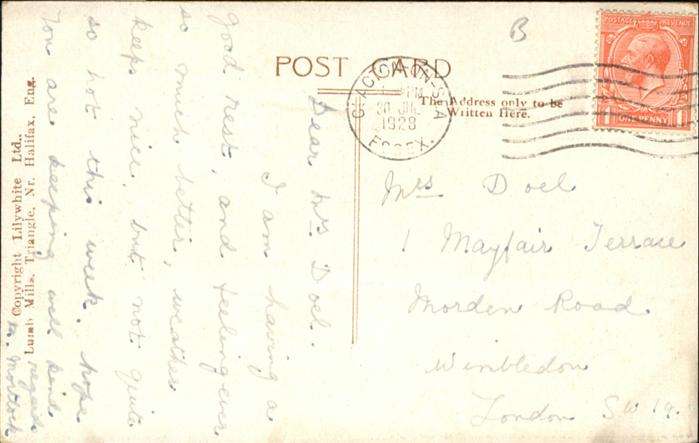 B
POSTAGE REVENUE
ONE PENNY
POST CARD
CLACTON-ON-SEA
PM
30 JUL
1928
ESSEX
The Address only to be
Written Here.
Mrs Doel
1 Mayfair Terrace
Morden Road
Wimbledon
London SW19.
Dear Mrs Doel.
I am having a
good rest, and feeling ever
so much better, weather
keeps nice, but not quite
so hot this week. hope
you are keeping well kind
regards
Mortlock
Copyright Lilywhite Ltd.,
Lumb Mills, Triangle, Nr. Halifax, Eng.